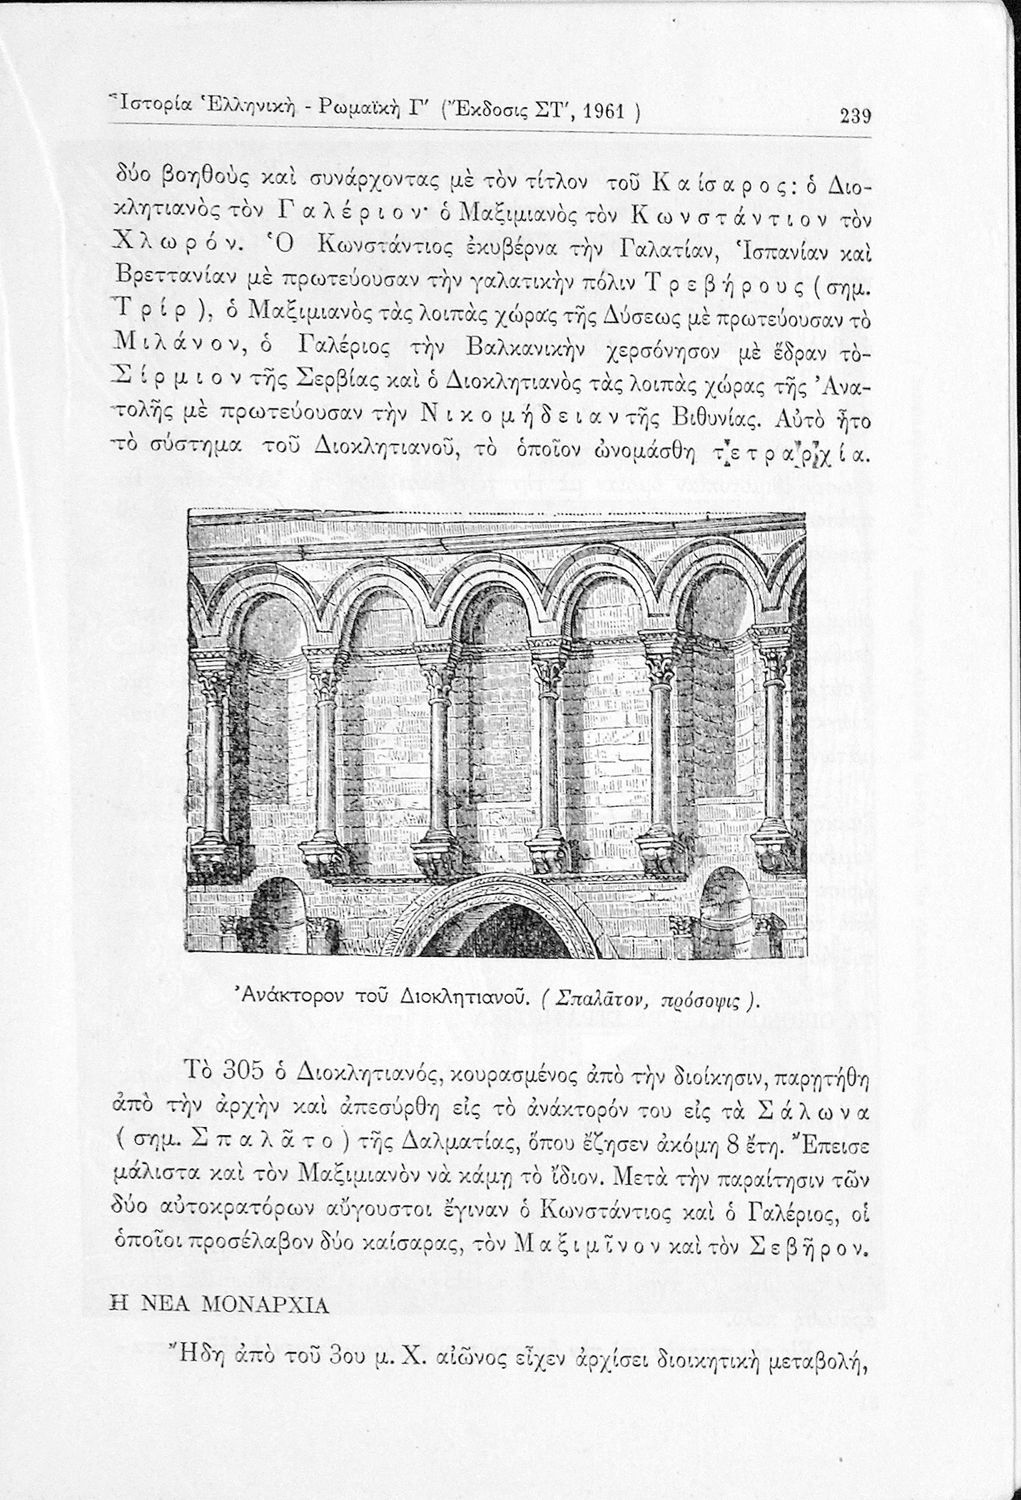 Ἱστορία Ἑλληνικὴ - Ρωμαϊκὴ Γ′ (Ἔκδοσις ΣΤ′, 1961 ) 239
δύο βοηθοὺς καὶ συνάρχοντας μὲ τὸν τίτλον τοῦ Καίσαρος: ὁ Διο-
κλητιανὸς τὸν Γαλέριον· ὁ Μαξιμιανὸς τὸν Κωνστάντιον τὸν
Χλωρόν. Ὁ Κωνστάντιος ἐκυβέρνα τὴν Γαλατίαν, Ἱσπανίαν καὶ
Βρεττανίαν μὲ πρωτεύουσαν τὴν γαλατικὴν πόλιν Τρεβήρους (σημ.
Τρίρ), ὁ Μαξιμιανὸς τὰς λοιπὰς χώρας τῆς Δύσεως μὲ πρωτεύουσαν τὸ
Μιλάνον, ὁ Γαλέριος τὴν Βαλκανικὴν χερσόνησον μὲ ἕδραν τὸ-
Σίρμιον τῆς Σερβίας καὶ ὁ Διοκλητιανὸς τὰς λοιπὰς χώρας τῆς Ἀνα-
τολῆς μὲ πρωτεύουσαν τὴν Νικομήδειαν τῆς Βιθυνίας. Αὐτὸ ἦτο
τὸ σύστημα τοῦ Διοκλητιανοῦ, τὸ ὁποῖον ὠνομάσθη τετραρχία.
Ἀνάκτορον τοῦ Διοκλητιανοῦ. ( Σπαλᾶτον, πρόσοψις ).
Τὸ 305 ὁ Διοκλητιανός, κουρασμένος ἀπὸ τὴν διοίκησιν, παρῃτήθη
ἀπὸ τὴν ἀρχὴν καὶ ἀπεσύρθη εἰς τὸ ἀνάκτορόν του εἰς τὰ Σάλωνα
( σημ. Σπαλᾶτο ) τῆς Δαλματίας, ὅπου ἔζησεν ἀκόμη 8 ἔτη. Ἔπεισε
μάλιστα καὶ τὸν Μαξιμιανὸν νὰ κάμῃ τὸ ἴδιον. Μετὰ τὴν παραίτησιν τῶν
δύο αὐτοκρατόρων αὔγουστοι ἔγιναν ὁ Κωνστάντιος καὶ ὁ Γαλέριος, οἱ
ὁποῖοι προσέλαβον δύο καίσαρας, τὸν Μαξιμῖνον καὶ τὸν Σεβῆρον.
Η ΝΕΑ ΜΟΝΑΡΧΙΑ
Ἤδη ἀπὸ τοῦ 3ου μ. Χ. αἰῶνος εἶχεν ἀρχίσει διοικητικὴ μεταβολή,